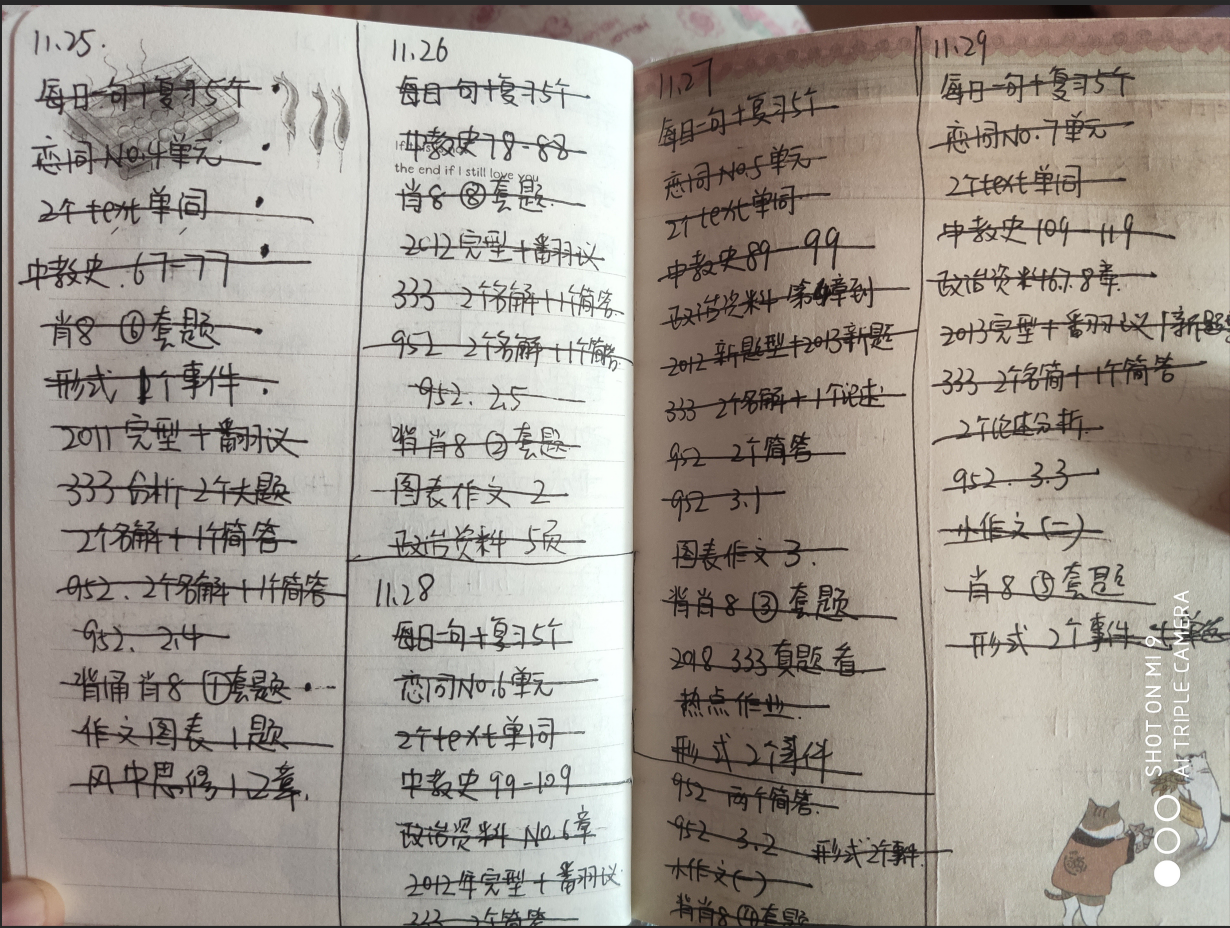 11.25.
每日一句+复习5个
恋词 No.4单元
2个text单词
中教史.67-77
肖8 ⑥套题
形式 1个事件.
2011完型+翻译
333分析2个大题
2个名解+1个简答
952.2个名解+1个简答
952. 2.4
背诵肖8①套题
作文图表1题
风中思修1.2章.
11.26
每日一句+复习5个
中教史78-88
the end if I still love you
肖8 ⑧套题.
2012完型+翻译
333 2个名解+1个简答
952 2个名解+1个简答
952. 2.5
背肖8②套题
图表作文 2
政治资料 5页
11.28
每日一句+复习5个
恋词No.6单元
2个text单词
中教史99-109
政治资料 No.6章
2012年完型+翻译
333 2个简答
11.27
每日一句+复习5个
恋词No.5单元
2个text单词
中教史89-99
政治资料 第4章到
2012新题型+2013新题
333 2个名解+1个论述
952 2个简答
952 3.1
图表作文3.
背肖8③套题
2018 333真题 看
热点作业.
形式 2个事件
952 两个简答.
952 3.2 形式2个事件.
小作文(一)
背肖8④套题
11.29
每日一句+复习5个
恋词No.7单元
2个text单词
中教史109-119
政治资料6.7.8章.
2013完型+翻译+新题
333 2个名简+1个简答
2个论述分析.
952. 3.3
小作文(二)
肖8⑤套题
形式 2个事件
SHOT ON MI 9
AI TRIPLE CAMERA